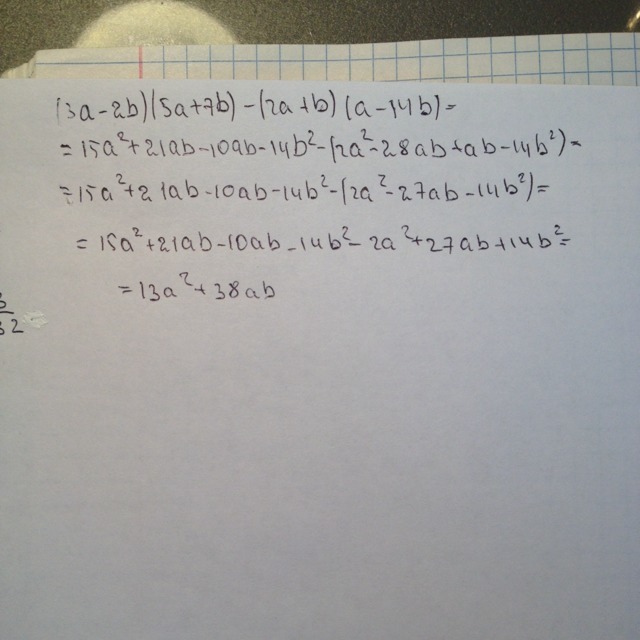 (3a-2b)(5a+7b)-(2a+b)(a-14b)=
=15a²+21ab-10ab-14b²-(2a²-28ab+ab-14b²)=
=15a²+21ab-10ab-14b²-(2a²-27ab-14b²)=
=15a²+21ab-10ab-14b²-2a²+27ab+14b²=
=13a²+38ab
32